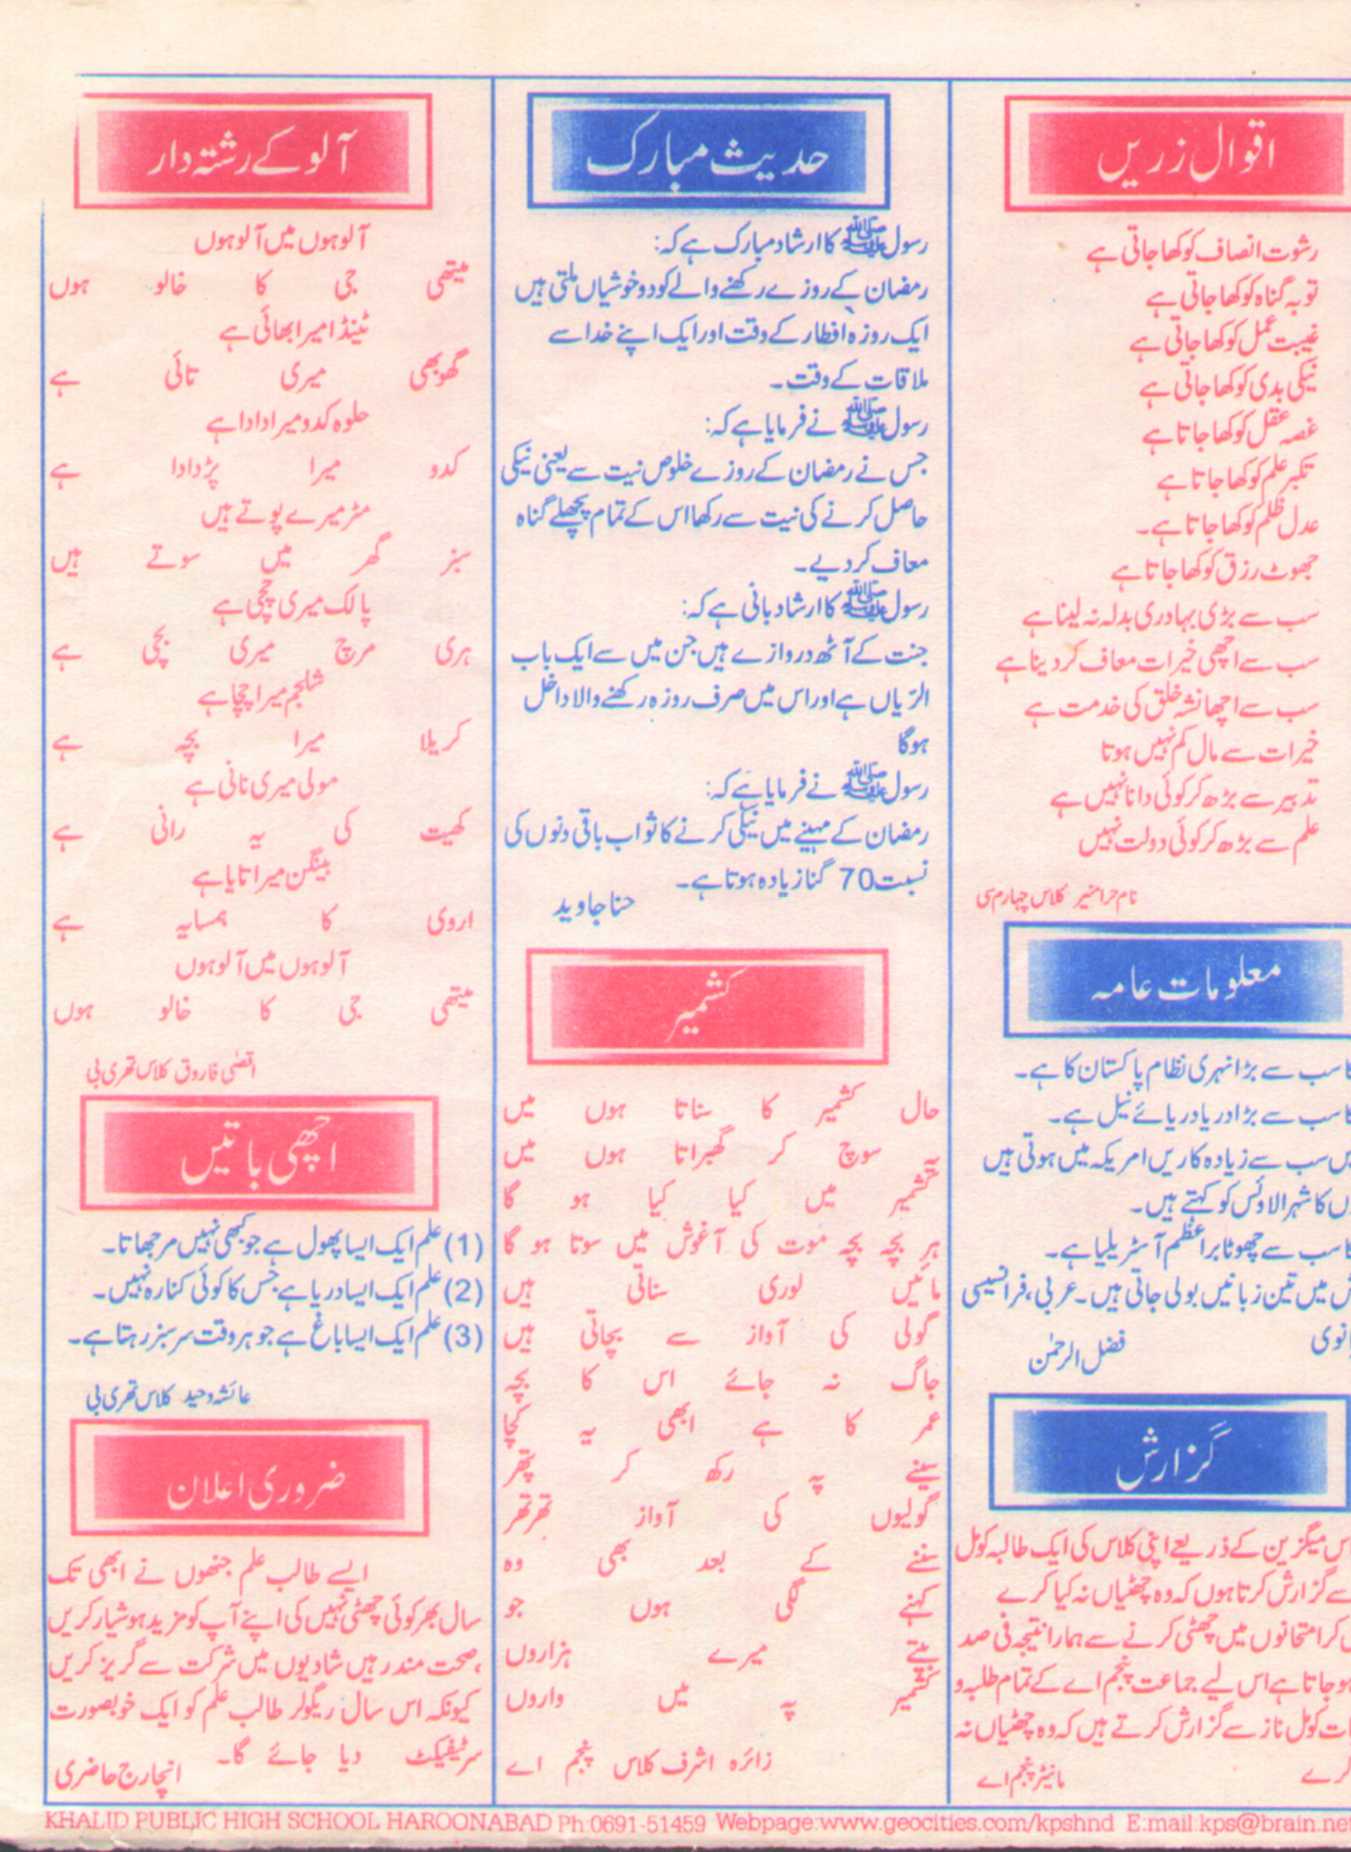 اقوال زریں
رشوت انصاف کو کھا جاتی ہے
توبہ گناہ کو کھا جاتی ہے
غیبت عمل کو کھا جاتی ہے
نیکی بدی کو کھا جاتی ہے
غصہ عقل کو کھا جاتا ہے
تکبر علم کو کھا جاتا ہے
عدل ظلم کو کھا جاتا ہے۔
جھوٹ رزق کو کھا جاتا ہے
سب سے بڑی بہادری بدلہ نہ لینا ہے
سب سے اچھی خیرات معاف کر دینا ہے
سب سے اچھا نشہ خلق کی خدمت ہے
خیرات سے مال کم نہیں ہوتا
تدبیر سے بڑھ کر کوئی دانا نہیں ہے
علم سے بڑھ کر کوئی دولت نہیں
نام حرا منیر کلاس چہارم سی
معلومات عامہ
سب سے بڑا نہری نظام پاکستان کا ہے۔
سب سے بڑا دریا دریائے نیل ہے۔
سب سے زیادہ کاریں امریکہ میں ہوتی ہیں
کا شہر الاوئس کو کہتے ہیں۔
سب سے چھوٹا براعظم آسٹریلیا ہے۔
میں تین زبانیں بولی جاتی ہیں۔ عربی، فرانسیسی
فضل الرحمٰن
گزارش
اس میگزین کے ذریعے اپنی کلاس کی ایک طالبہ کومل
سے گزارش کرتا ہوں کہ وہ چھٹیاں نہ کیا کرے
کر امتحانوں میں چھٹی کرنے سے ہمارا نتیجہ فی صد
ہو جاتا ہے اس لیے جماعت پنجم اے کے تمام طلبہ و
کومل ناز سے گزارش کرتے ہیں کہ وہ چھٹیاں نہ
کرے
مانیٹر پنجم اے
حدیث مبارک
رسول ﷺ کا ارشاد مبارک ہے کہ:
رمضان کے روزے رکھنے والے کو دو خوشیاں ملتی ہیں
ایک روزہ افطار کے وقت اور ایک اپنے خدا سے
ملاقات کے وقت۔
رسول ﷺ نے فرمایا ہے کہ:
جس نے رمضان کے روزے خلوص نیت سے یعنی نیکی
حاصل کرنے کی نیت سے رکھا اس کے تمام پچھلے گناہ
معاف کر دیے۔
رسول ﷺ کا ارشاد بانی ہے کہ:
جنت کے آٹھ دروازے ہیں جن میں سے ایک باب
الرّیاں ہے اور اس میں صرف روزہ رکھنے والا داخل
ہوگا
رسول ﷺ نے فرمایا ہے کہ:
رمضان کے مہینے میں نیکی کرنے کا ثواب باقی دنوں کی
نسبت 70 گنا زیادہ ہوتا ہے۔
حنا جاوید
کشمیر
حال کشمیر کا سناتا ہوں میں
سوچ کر گھبراتا ہوں میں
کشمیر میں کیا کیا ہو گا
ہر بچہ بچہ موت کی آغوش میں سوتا ہو گا
مائیں لوری سناتی ہیں
گولی کی آواز سے بچاتی ہیں
جاگ نہ جائے اس کا بچہ
عمر کا ہے ابھی یہ کچا
سینے پہ رکھ کر پتھر
گولیوں کی آواز تھرتھر
سننے کے بعد بھی وہ
کہنے لگی ہوں جو
بیٹے میرے ہزاروں
کشمیر پہ میں واروں
زائرہ اشرف کلاس پنجم اے
آلو کے رشتہ دار
آلو ہوں میں آلو ہوں
میتھی جی کا خالو ہوں
ٹینڈا میرا بھائی ہے
گھوبھی میری تائی ہے
حلوہ کدو میرا دادا ہے
کدو میرا پڑدادا ہے
مٹر میرے پوتے ہیں
سبز گھر میں سوتے ہیں
پالک میری چچی ہے
ہری مرچ میری بچی ہے
شلجم میرا چچا ہے
کریلا میرا بچہ ہے
مولی میری نانی ہے
کھیت کی یہ رانی ہے
بینگن میرا تایا ہے
اروی کا ہمسایہ ہے
آلو ہوں میں آلو ہوں
میتھی جی کا خالو ہوں
اقصٰی فاروق کلاس تھری بی
اچھی باتیں
(1) علم ایک ایسا پھول ہے جو کبھی نہیں مرجھاتا۔
(2) علم ایک ایسا دریا ہے جس کا کوئی کنارہ نہیں۔
(3) علم ایک ایسا باغ ہے جو ہر وقت سرسبز رہتا ہے۔
عائشہ وحید کلاس تھری بی
ضروری اعلان
ایسے طالب علم جنھوں نے ابھی تک
سال بھر کوئی چھٹی نہیں کی اپنے آپ کو مزید ہوشیار کریں
،صحت مند رہیں شادیوں میں شرکت سے گریز کریں
کیونکہ اس سال ریگولر طالب علم کو ایک خوبصورت
سرٹیفکیٹ دیا جائے گا۔
انچارج حاضری
KHALID PUBLIC HIGH SCHOOL HAROONABAD Ph:0691-51459 Webpage:www.geocities.com/kpshnd E:mail:kps@brain.net